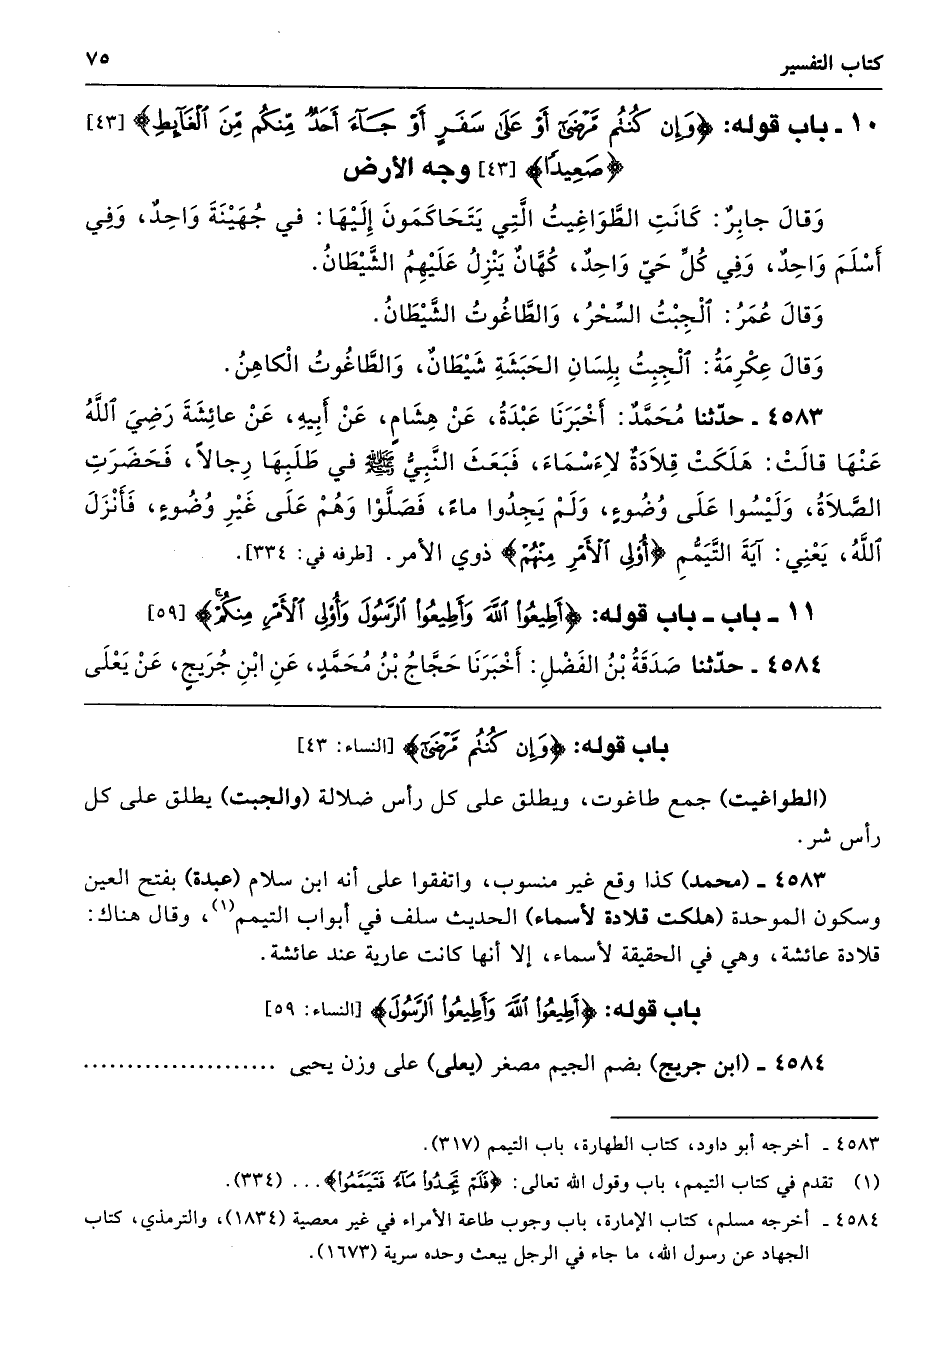 كتاب التفسير ٧٥
١٠ ـ باب قوله: ﴿وَإِن كُنتُم مَّرْضَىٰٓ أَوْ عَلَىٰ سَفَرٍ أَوْ جَآءَ أَحَدٌ مِّنكُم مِّنَ ٱلْغَآئِطِ﴾ [٤٣]
﴿صَعِيدًا﴾ [٤٣] وجه الأرض
وَقالَ جابِرٌ: كَانَتِ الطَّوَاغِيتُ الَّتِي يَتَحَاكَمُونَ إِلَيْهَا: في جُهَيْنَةَ وَاحِدٌ، وَفِي
أَسْلَمَ وَاحِدٌ، وَفِي كُلِّ حَيٍّ وَاحِدٌ، كُهَّانٌ يَنْزِلُ عَلَيْهِمُ الشَّيْطَانُ.
وَقالَ عُمَرُ: ٱلْجِبْتُ السِّحْرُ، وَالطَّاغُوتُ الشَّيْطَانُ.
وَقالَ عِكْرِمَةُ: ٱلْجِبتُ بِلِسَانِ الحَبَشَةِ شَيْطَانٌ، وَالطَّاغُوتُ الْكاهِنُ.
٤٥٨٣ ـ حدّثنا مُحَمَّدٌ: أَخْبَرَنَا عَبْدَةُ، عَنْ هِشَامٍ، عَنْ أَبِيهِ، عَنْ عائِشَةَ رَضِيَ ٱللَّهُ
عَنْهَا قالَتْ: هَلَكَتْ قِلَادَةٌ لِأَسْمَاءَ، فَبَعَثَ النَّبِيُّ ﷺ في طَلَبِهَا رِجالاً، فَحَضَرَتِ
الصَّلَاةُ، وَلَيْسُوا عَلَى وُضُوءٍ، وَلَمْ يَجِدُوا ماءً، فَصَلَّوْا وَهُمْ عَلَى غَيْرِ وُضُوءٍ، فَأَنْزَلَ
ٱللَّهُ، يَعْنِي: آيَةَ التَّيَمُّمِ ﴿أُوْلِي ٱلْأَمْرِ مِنْهُمْ﴾ ذوي الأمر. [طرفه في: ٣٣٤].
١١ ـ باب ـ باب قوله: ﴿أَطِيعُوا۟ ٱللَّهَ وَأَطِيعُوا۟ ٱلرَّسُولَ وَأُوْلِي ٱلْأَمْرِ مِنكُمْ﴾ [٥٩]
٤٥٨٤ ـ حدّثنا صَدَقَةُ بْنُ الفَضْلِ: أَخْبَرَنَا حَجَّاجُ بْنُ مُحَمَّدٍ، عَنِ ابْنِ جُرَيجٍ، عَنْ يَعْلَى
باب قوله: ﴿وَإِن كُنتُم مَّرْضَىٰٓ﴾ [النساء: ٤٣]
(الطواغيت) جمع طاغوت، ويطلق على كل رأس ضلالة (والجبت) يطلق على كل
رأس شر.
٤٥٨٣ ـ (محمد) كذا وقع غير منسوب، واتفقوا على أنه ابن سلام (عبدة) بفتح العين
وسكون الموحدة (هلكت قلادة لأسماء) الحديث سلف في أبواب التيمم(١)، وقال هناك:
قلادة عائشة، وهي في الحقيقة لأسماء، إلا أنها كانت عارية عند عائشة.
باب قوله: ﴿أَطِيعُوا۟ ٱللَّهَ وَأَطِيعُوا۟ ٱلرَّسُولَ﴾ [النساء: ٥٩]
٤٥٨٤ ـ (ابن جريج) بضم الجيم مصغر (يعلى) على وزن يحيى ......................
٤٥٨٣ ـ أخرجه أبو داود، كتاب الطهارة، باب التيمم (٣١٧).
(١) تقدم في كتاب التيمم، باب وقول الله تعالى: ﴿فَلَمْ تَجِدُوا۟ مَآءً فَتَيَمَّمُوا۟﴾... (٣٣٤).
٤٥٨٤ ـ أخرجه مسلم، كتاب الإمارة، باب وجوب طاعة الأمراء في غير معصية (١٨٣٤)، والترمذي، كتاب
الجهاد عن رسول الله، ما جاء في الرجل يبعث وحده سرية (١٦٧٣).